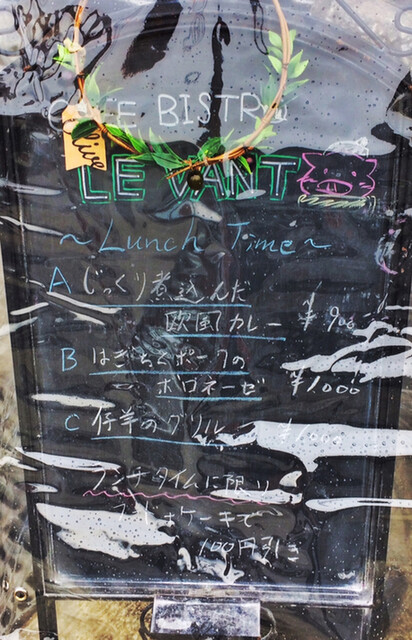 CAFE BISTRO
Olive
LE VANT
~ Lunch Time ~
A じっくり煮込んだ
欧風カレー ¥900
B はちみつポークの
ボロネーゼ ¥1.000
C 仔羊のグリル
ランチタイムに限り
ケーキで
100円引き